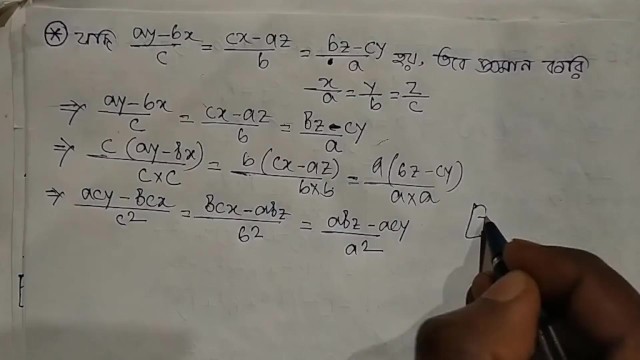 ⊛ যদি (ay-bx)/c = (cx-az)/b = (bz-cy)/a হয়, তবে প্রমান করি
x/a = y/b = z/c
⇒ (ay-bx)/c = (cx-az)/b = (bz-cy)/a
⇒ c(ay-bx)/(c×c) = b(cx-az)/(b×b) = a(bz-cy)/(a×a)
⇒ (acy-bcx)/c² = (bcx-abz)/b² = (abz-acy)/a²